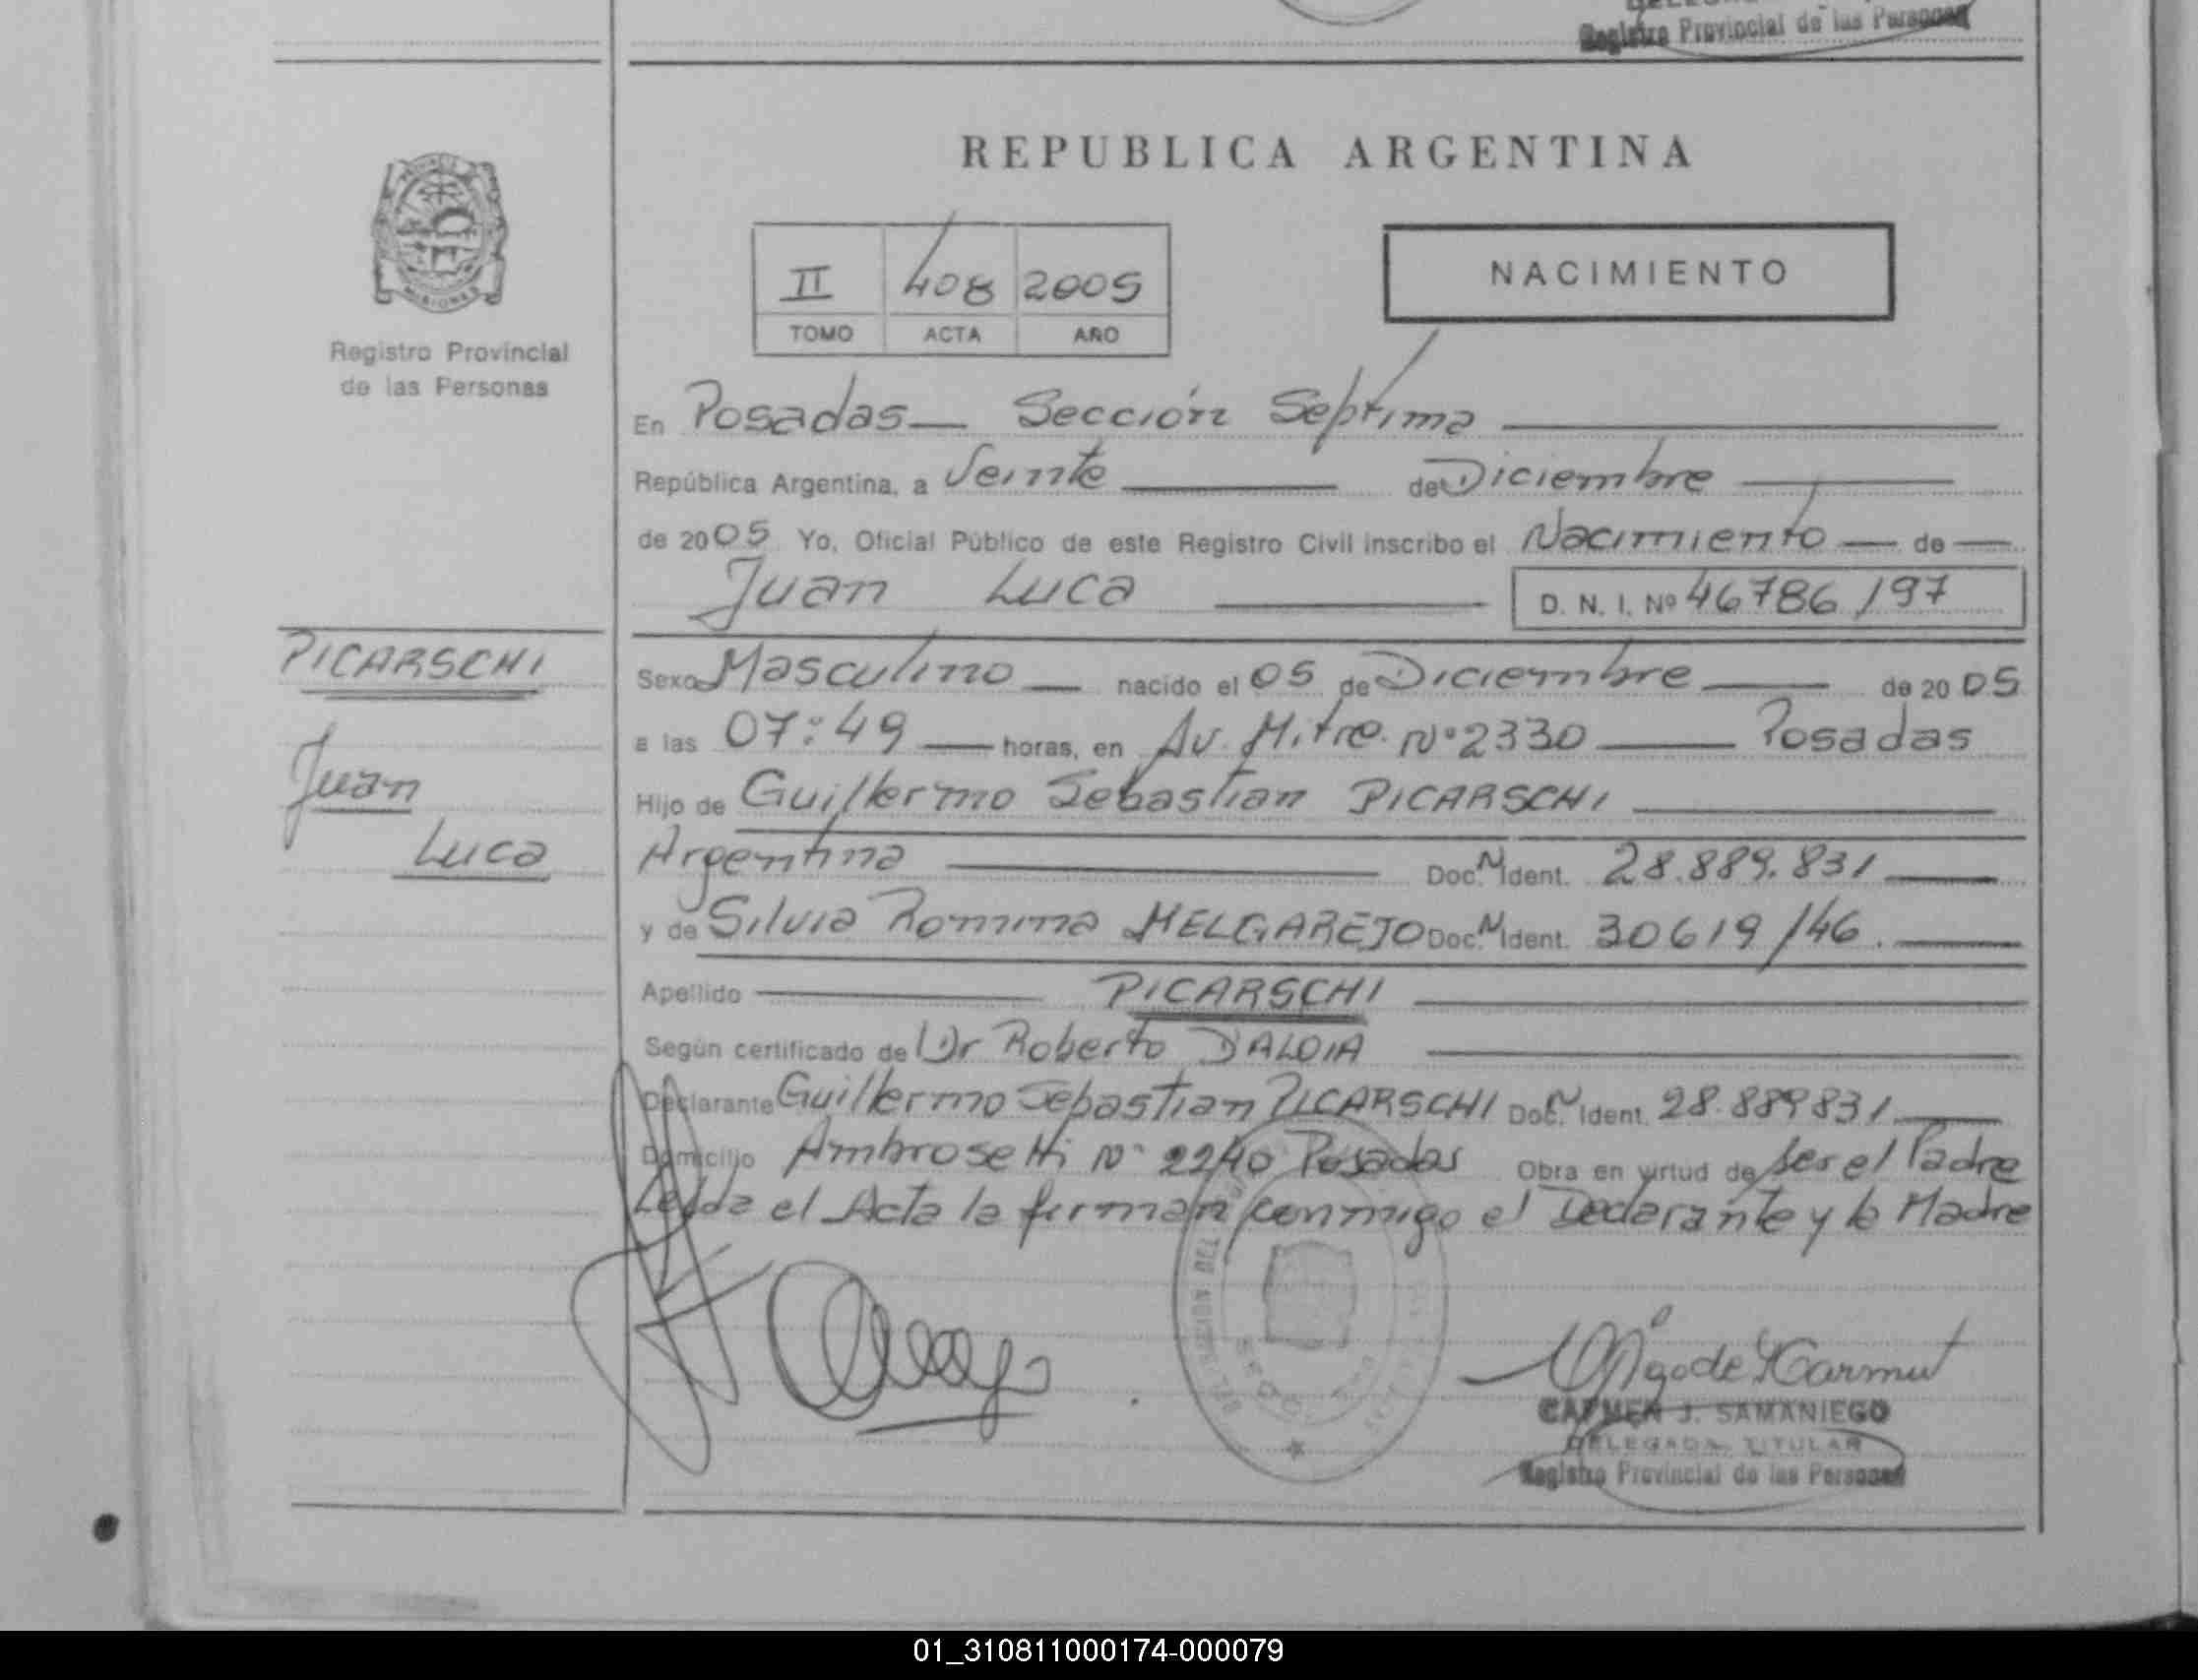 Registro Provincial de las Personas
REPUBLICA ARGENTINA
II 408 2005
TOMO ACTA AÑO
NACIMIENTO
MISIONES
Registro Provincial
de las Personas
En Posadas — Sección Septima
República Argentina, a Veinte de Diciembre
de 2005 Yo, Oficial Público de este Registro Civil inscribo el Nacimiento — de —
Juan Luca D. N. I. Nº 46786197
PICARSCHI
Juan
Luca
Sexo Masculino — nacido el 05 de Diciembre de 2005
a las 07:49 — horas, en Av. Mitre. Nº 2330 — Posadas
Hijo de Guillermo Sebastian PICARSCHI
Argentina Doc. N Ident. 28.889.831
y de Silvia Romina MELGAREJO Doc. N Ident. 30619146.
Apellido PICARSCHI
Según certificado de Dr Roberto D'ALOIA
Declarante Guillermo Sebastian PICARSCHI Doc. N Ident. 28.889831
Domicilio Ambrosetti Nº 2240 Posadas Obra en virtud de ser el Padre
Leída el Acta la firman conmigo el Declarante y la Madre
CARMEN J. SAMANIEGO
DELEGADA TITULAR
Registro Provincial de las Personas
01_310811000174-000079